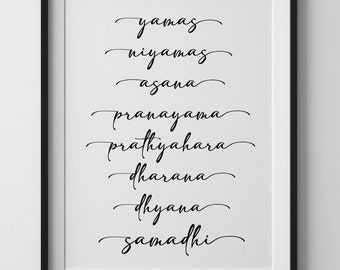 yamas
niyamas
asana
pranayama
prathyahara
dharana
dhyana
samadhi